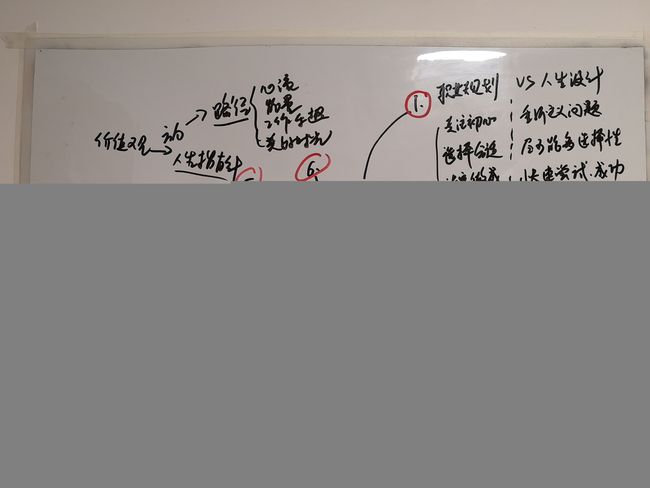 价值观
人生指南针
路径
心流
能量
工作日志
美好时光
6.
1.
职业规划 VS 人生设计
关注初心
重新定义问题
选择合适
尽可能多选择性
快速尝试.成功